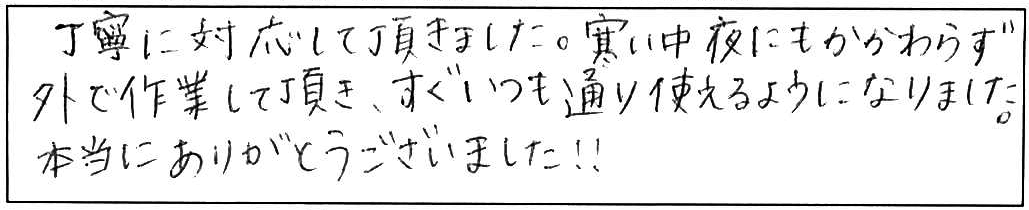 丁寧に対応して頂きました。寒い中夜にもかかわらず
外で作業して頂き、すぐいつも通り使えるようになりました。
本当にありがとうございました!!